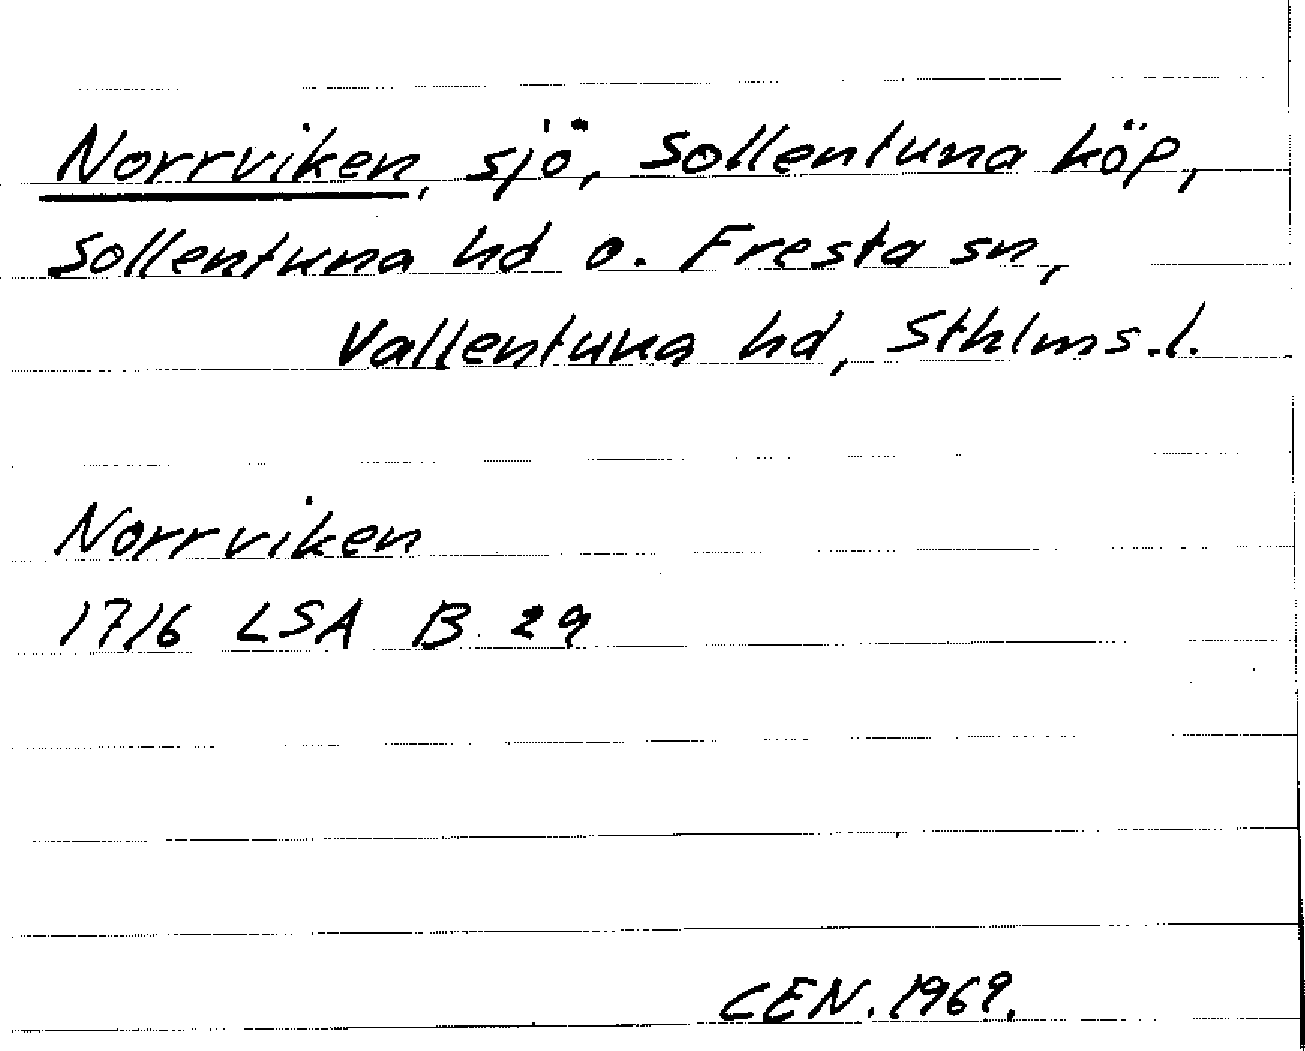 Norrviken, sjö, Sollentuna köp,
Sollentuna hd o. Fresta sn,
Vallentuna hd, Sthlms.l.
Norrviken
1716 LSA B. 29
CEN. 1969.